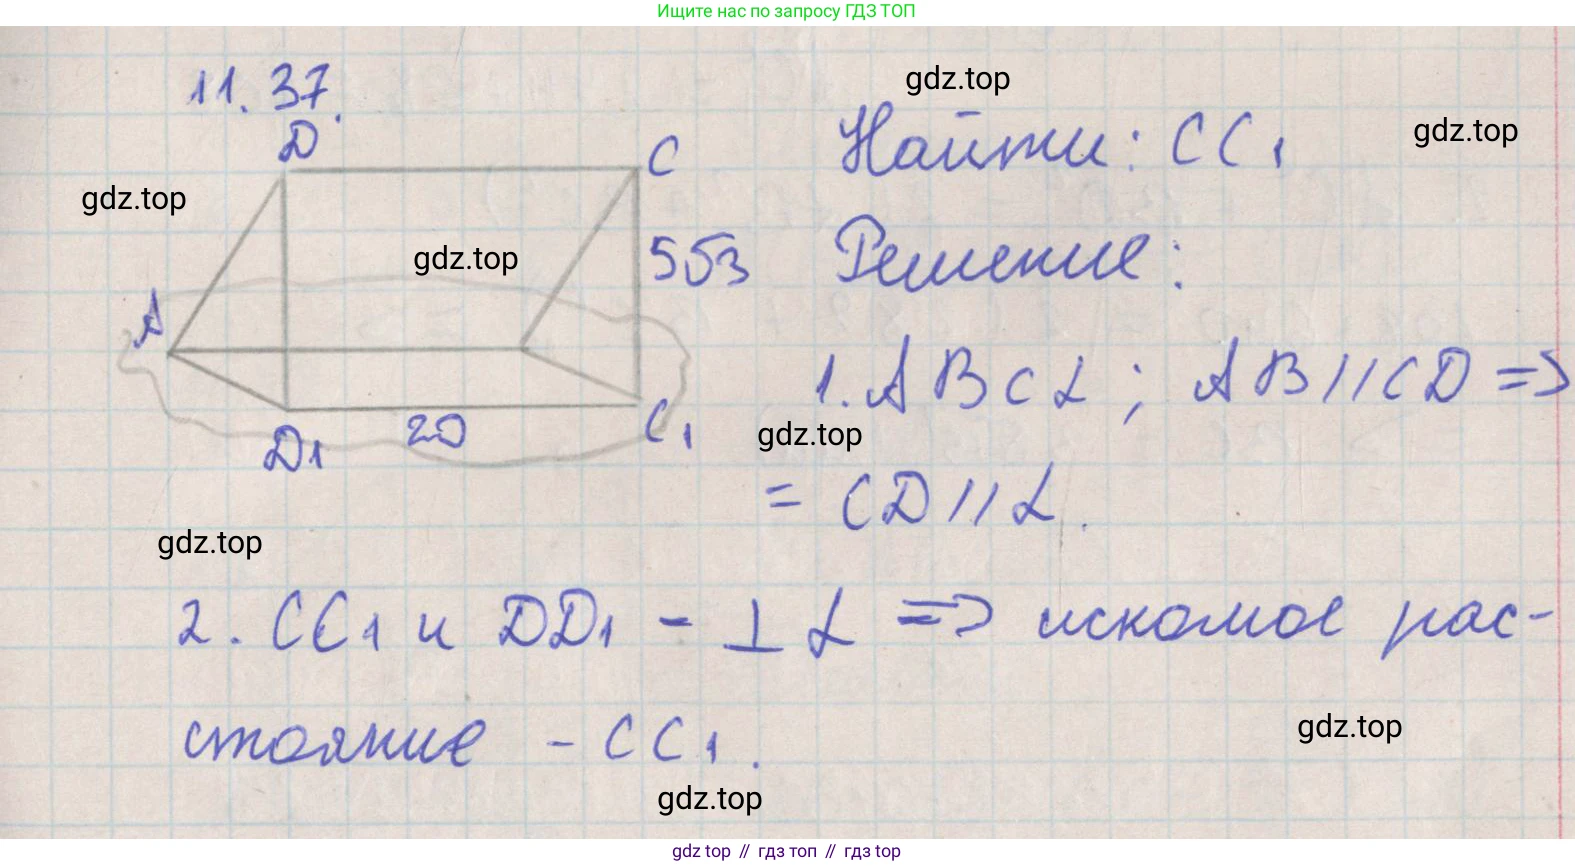 Ищите нас по запросу ГДЗ ТОП
11.37.
gdz.top
gdz.top
D
C
Найти: CC1
gdz.top
gdz.top
5√3
Решение:
A
1. ABCα; AB//CD =>
20
C1
gdz.top
D1
= CD//α.
gdz.top
2. CC1 и DD1 - ⊥ α => искомое рас-
стояние - CC1.
gdz.top
gdz.top
gdz top // гдз топ // гдз top